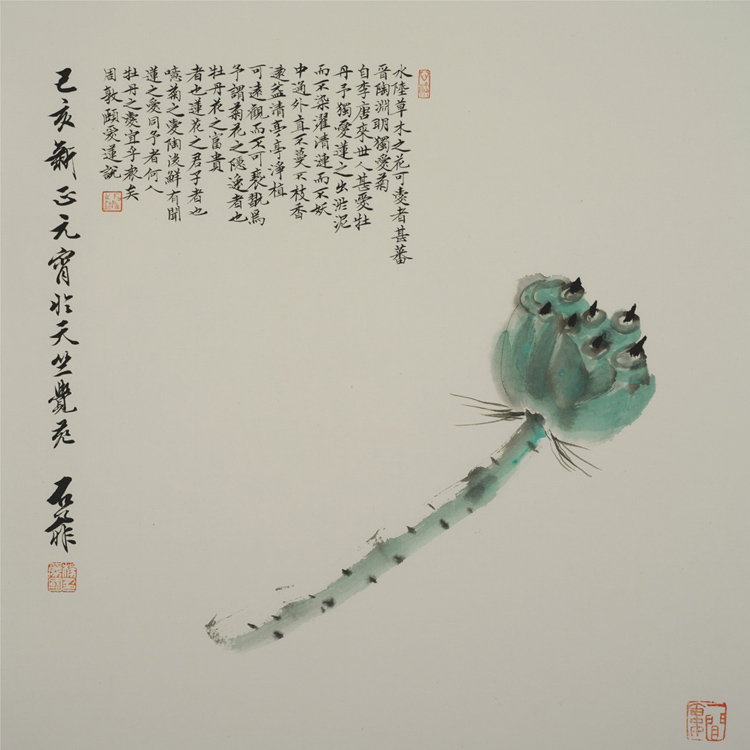 水陸草木之花可愛者甚蕃
晉陶淵明獨愛菊
自李唐來世人甚愛牡
丹予獨愛蓮之出淤泥
而不染濯清漣而不妖
中通外直不蔓不枝香
遠益清亭亭淨植
可遠觀而不可褻翫焉
予謂菊花之隱逸者也
牡丹花之富貴
者也蓮花之君子者也
噫菊之愛陶後鮮有聞
蓮之愛同予者何人
牡丹之愛宜乎衆矣
周敦頤愛蓮説
己亥新正元宵於天竺覺
石